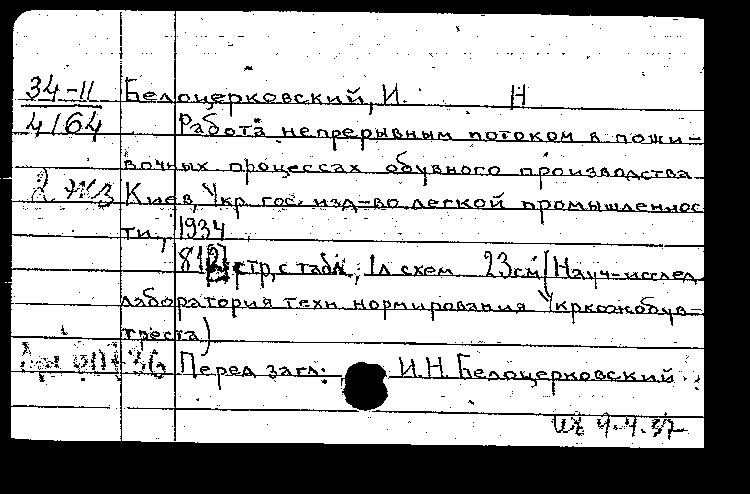 34-II Белоцерковский, И. Н
4164 Работа непрерывным потоком в поши-
вочных процессах обувного производства
2 экз Киев, Укр. гос. изд-во легкой промышленнос
ти, 1934
стр, с табл., 1л схем 23см (Науч-исслед.
лаборатория техн нормирования Укркожобув-
треста)
36 Перед загл: И.Н. Белоцерковский
9.4.37